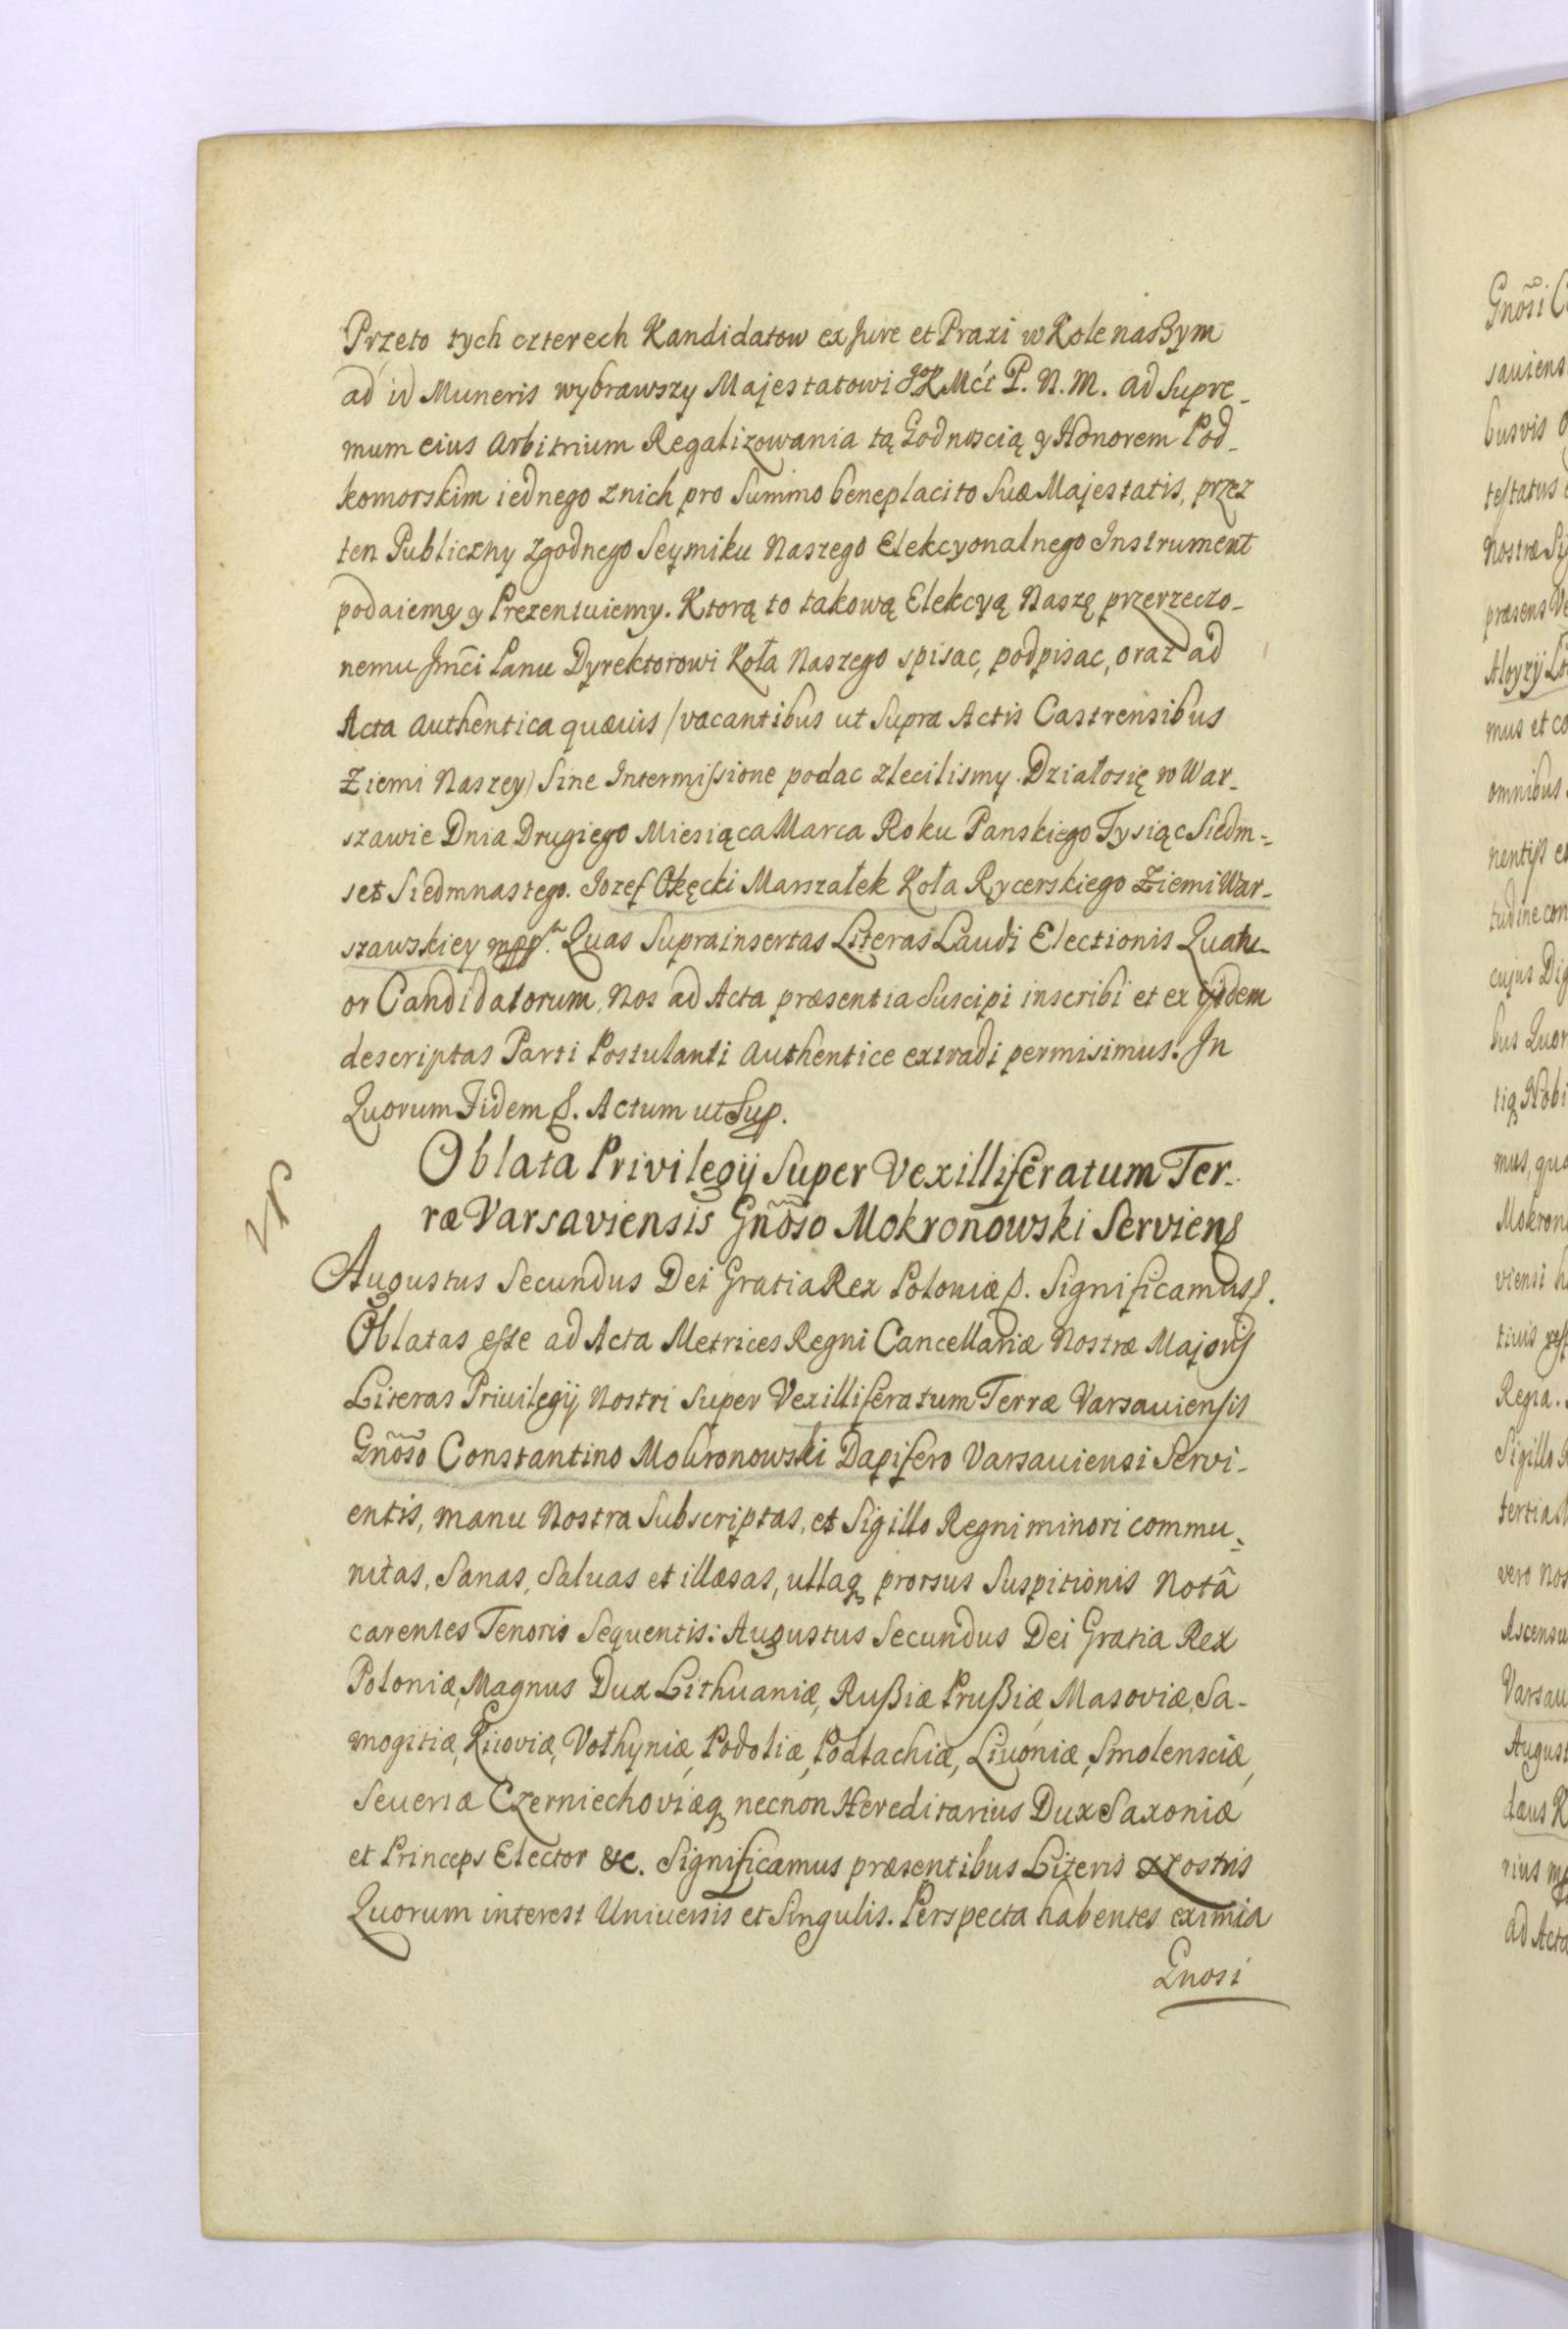 Przeto tych czterech Kandidatow ex Jure et Praxi w Kole naszym
ad id Muneris wybrawszy Majestatowi JoKMći P. N. M. ad Supre-
mum eius arbitrium Regalizowania tą Godnoscią y Honorem Pod-
komorskim iednego z nich pro Summo beneplacito Suæ Majestatis, przez
ten Publiczny zgodnego Seymiku Naszego Elekcyonalnego Instrument
podaiemy y Prezentuiemy. Ktorą to takową Elekcyą Naszę przerzeczo-
nemu Jmći Panu Dyrektorowi Koła Naszego spisac, podpisac, oraz ad
Acta authentica quævis /vacantibus ut Supra Actis Castrensibus
Ziemi Naszey/ Sine Intermissione podac zlecilismy. Działosię w War-
szawie Dnia Drugiego Miesiąca Marca Roku Panskiego Tysiąc Siedm-
set Siedmnastego. Jozef Okęcki Marszałek Koła Rycerskiego Ziemi War-
szawskiey mpp. Quas Suprainsertas Literas Laudi Electionis Quatu-
or Candidatorum, Nos ad Acta præsentia Suscipi inscribi et ex ijsdem
descriptas Parti Postulanti authentice extradi permisimus. In
Quorum Fidem &. Actum ut Sup.
Oblata Privilegij Super Vexilliferatum Ter-
ræ Varsaviensis Gnoso Mokronowski Serviens
Augustus Secundus Dei Gratia Rex Poloniæ &. Significamus &.
Oblatas esse ad Acta Metrices Regni Cancellariæ Nostræ Majoris
Literas Privilegij Nostri Super Vexilliferatum Terræ Varsauiensis
Gnoso Constantino Mokronowski Dapifero Varsauiensi Servi-
entis, manu Nostra Subscriptas, et Sigillo Regni minori commu-
nitas, Sanas, Saluas et illæsas, ullaq prorsus Suspitionis Notâ
carentes Tenoris Sequentis: Augustus Secundus Dei Gratia Rex
Poloniæ, Magnus Dux Lithuaniæ, Rußiæ Prußiæ Masoviæ, Sa-
mogitiæ, Kiioviæ, Volhyniæ, Podoliæ, Podlachiæ, Livoniæ, Smolensciæ,
Seueriæ Czerniechoviæq necnon Hereditarius Dux Saxoniæ
et Princeps Elector &c. Significamus præsentibus Literis Nostris
Quorum interest Uniuersis et Singulis. Perspecta habentes eximia
Gnosi